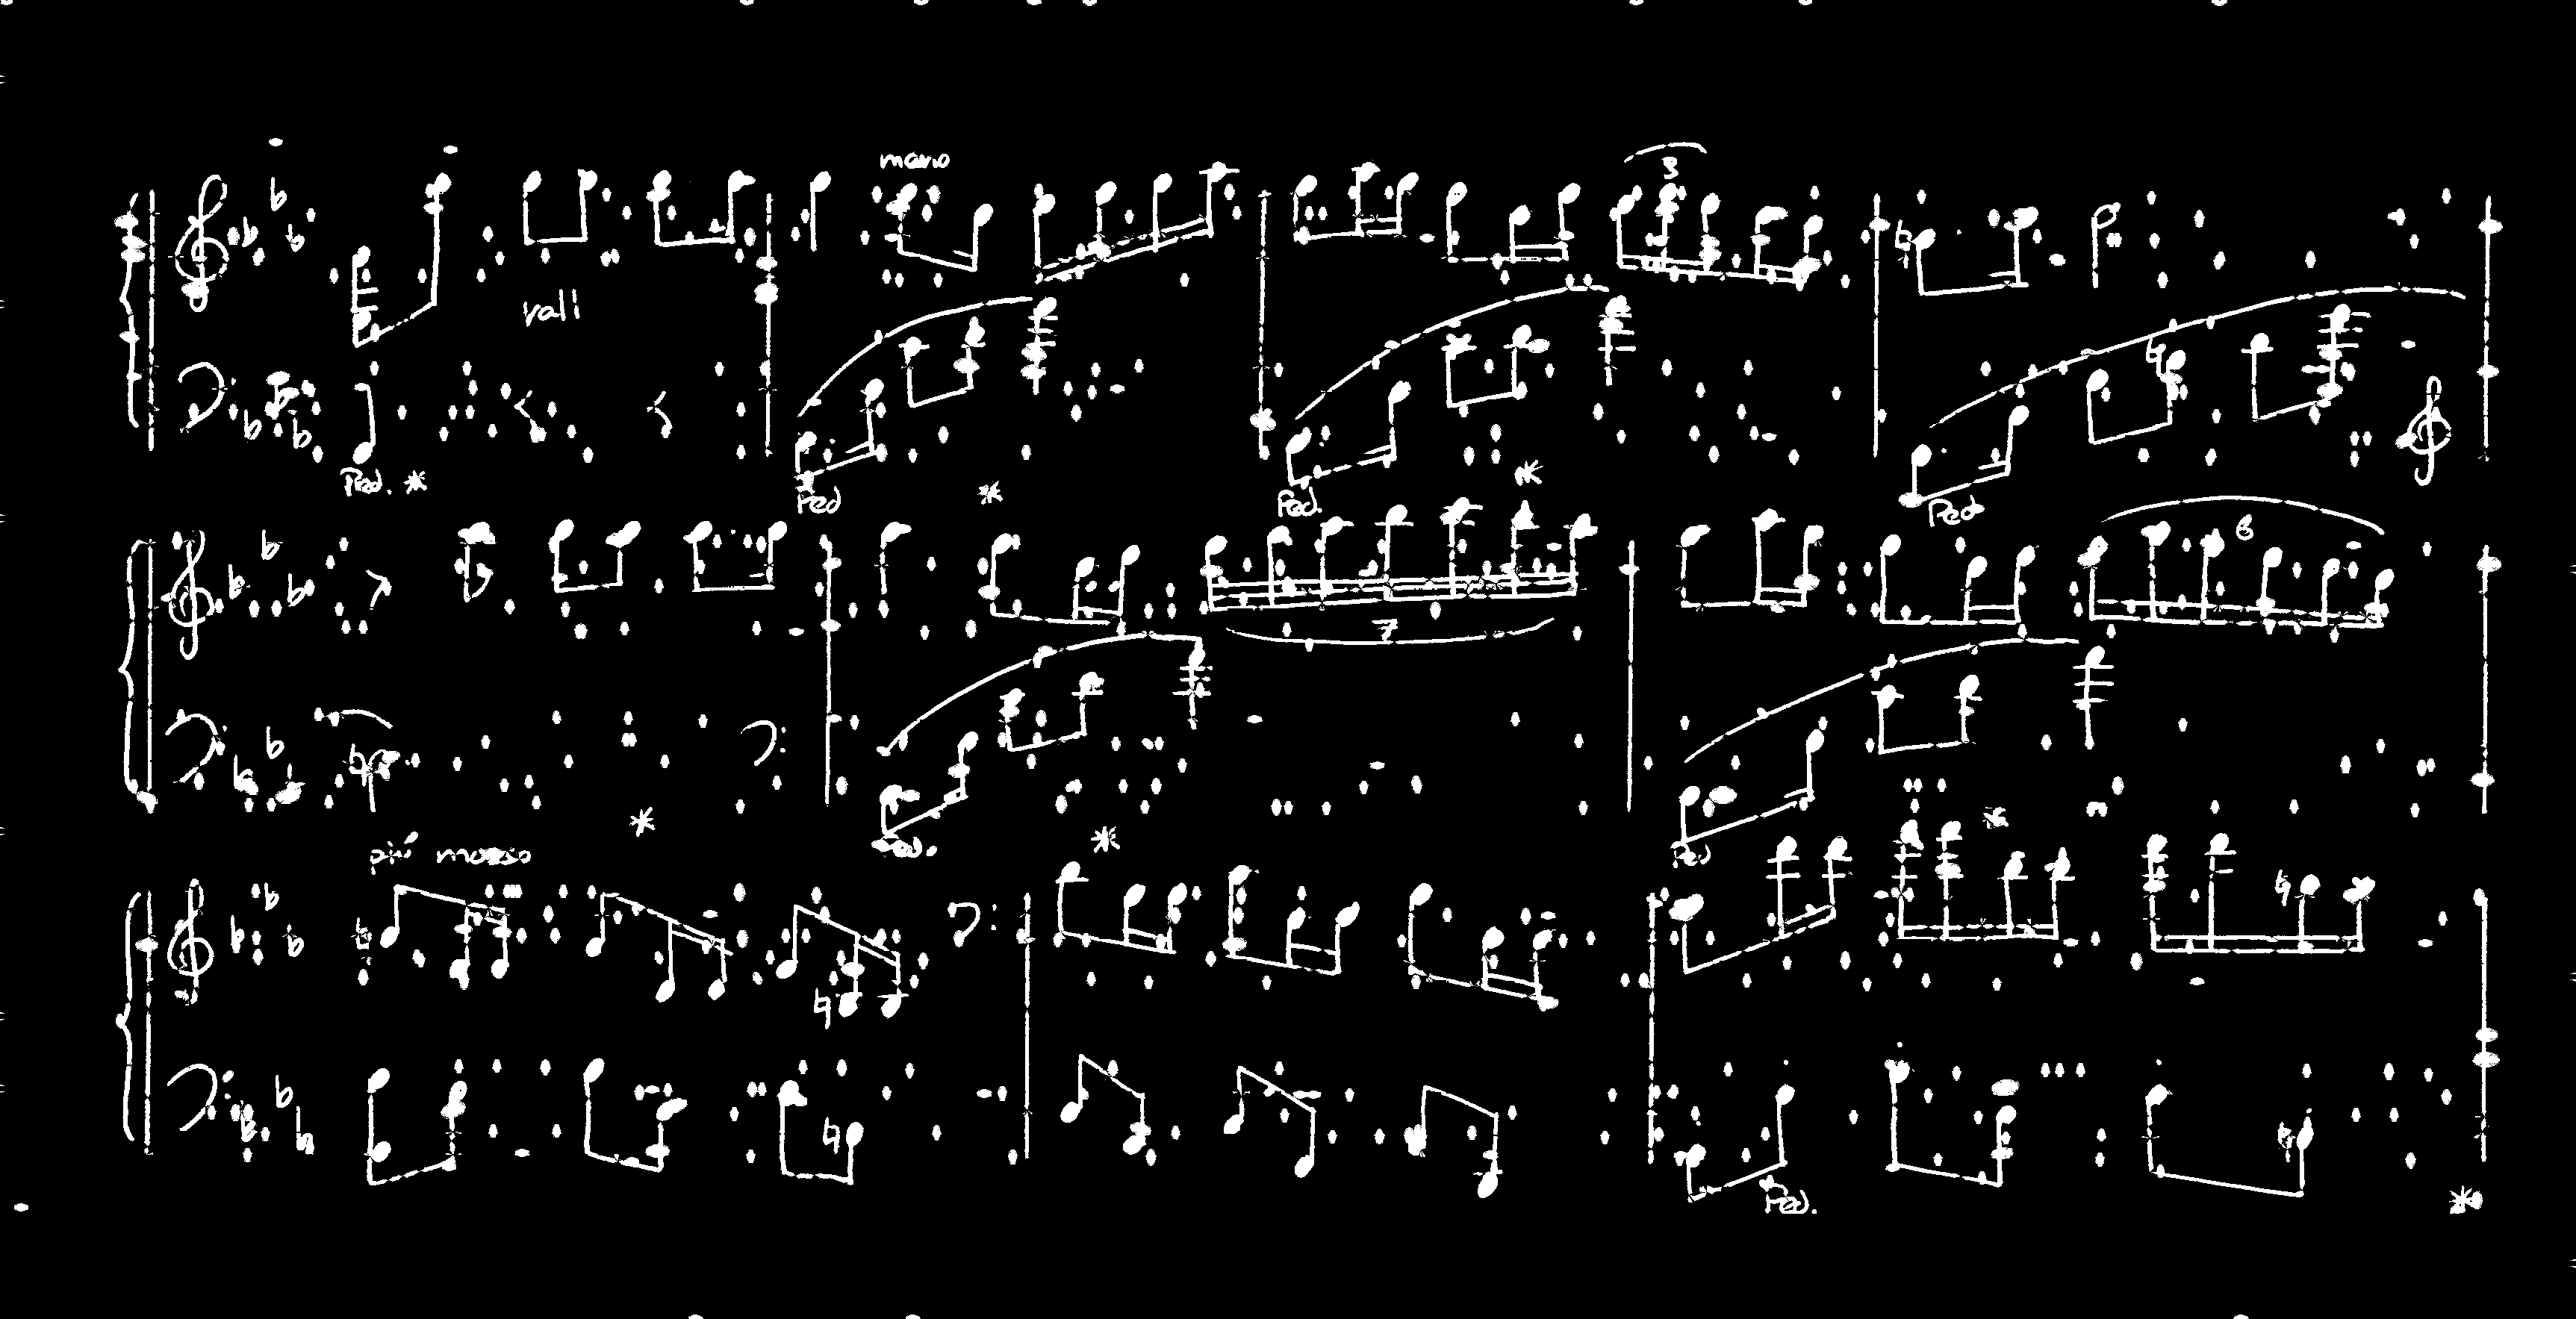 mano
3
rall
Ped. * Ped * Ped. * Ped
6
7
* Ped. * Ped *
più mosso
Ped. *